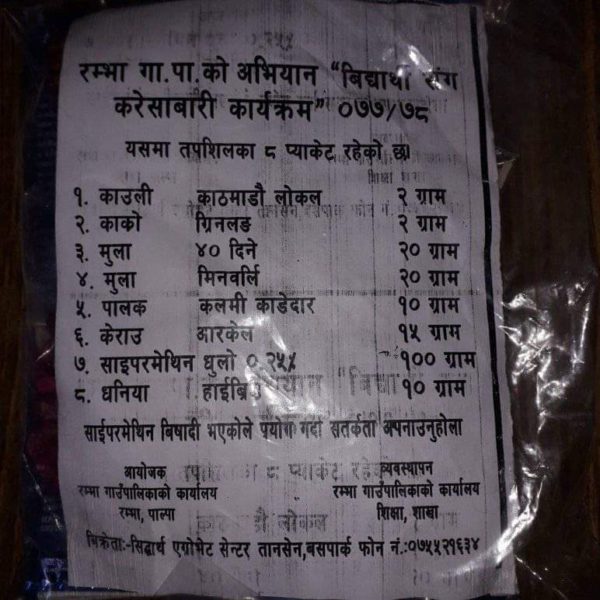 रम्भा गा.पा.को अभियान "बिद्यार्थी संग
करेसाबारी कार्यक्रम" ०७७/७८
यसमा तपशिलका ८ प्याकेट रहेको छ।
१. काउली काठमाडौ लोकल २ ग्राम
२. काको ग्रिनलङ २ ग्राम
३. मुला ४० दिने २० ग्राम
४. मुला मिनवर्लि २० ग्राम
५. पालक कलमी काडेदार १० ग्राम
६. केराउ आरकेल १५ ग्राम
७. साइपरमेथिन धुलो ०.२५% १०० ग्राम
८. धनिया हाईब्रिड १० ग्राम
साईपरमेथिन बिषादी भएकोले प्रयोग गर्दा सतर्कता अपनाउनुहोला
आयोजक
रम्भा गाउँपालिकाको कार्यालय
रम्भा, पाल्पा
व्यवस्थापन
रम्भा गाउँपालिकाको कार्यालय
शिक्षा, शाखा
बिक्रेताः-सिद्धार्थ एग्रोभेट सेन्टर तानसेन,बसपार्क फोन नं.:०७५५२१६३४